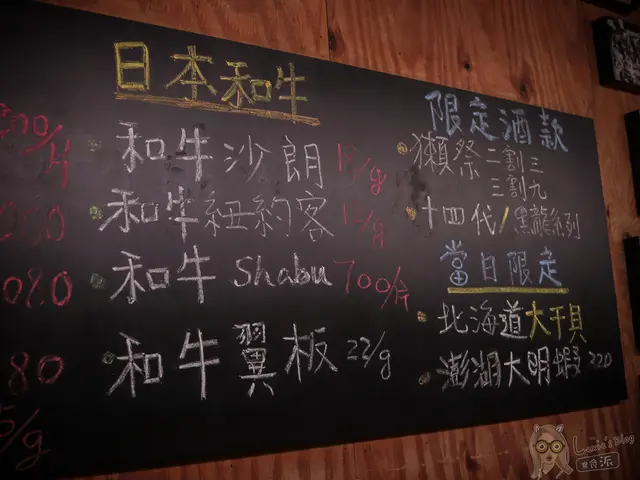 日本和牛
和牛沙朗
和牛紐約客
和牛 Shabu 700/片
和牛翼板 22/g
080
80
5/g
限定酒款
獺祭 二割三
三割九
十四代/黑龍系列
當日限定
北海道大干貝
澎湖大明蝦 220
Lanie's Blog
食派